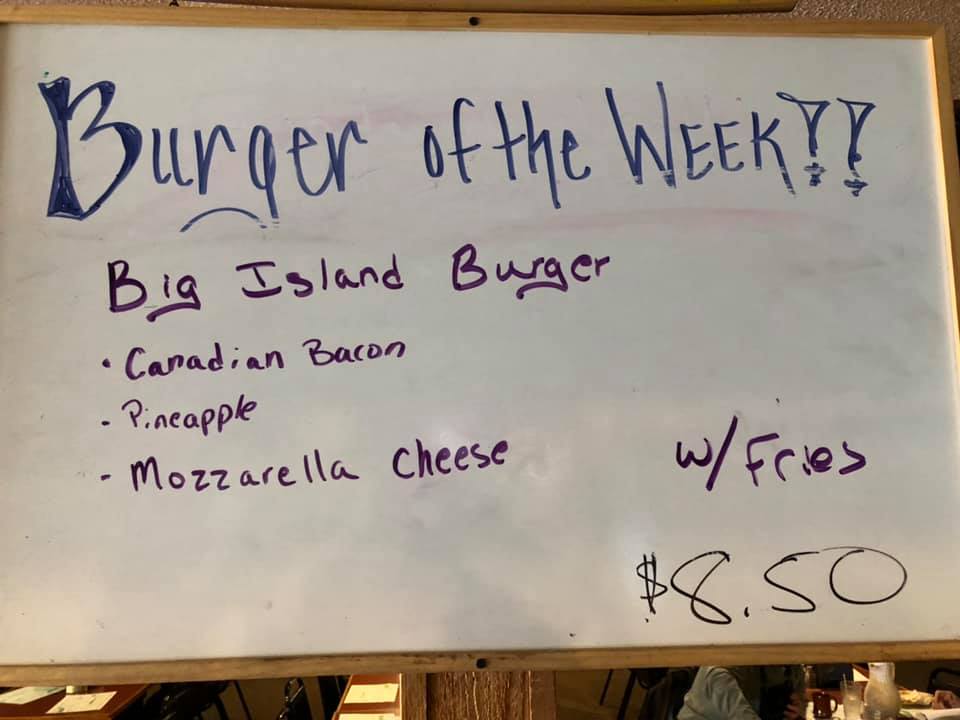 Burger of the WEEK!!
Big Island Burger
• Canadian Bacon
- Pineapple
- Mozzarella cheese
w/Fries
$8.50